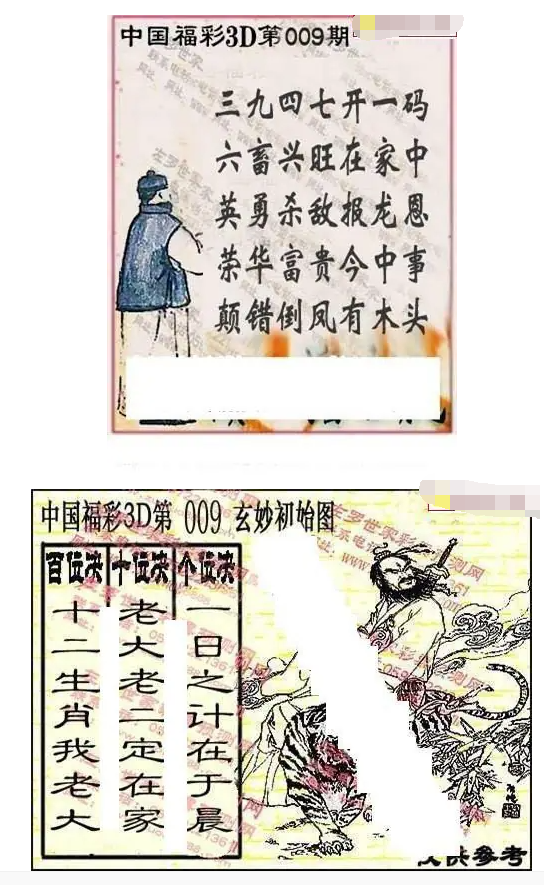 中国福彩3D第009期
三九四七开一码
六畜兴旺在家中
英勇杀敌报龙恩
荣华富贵今中事
颠错倒凤有木头
中国福彩3D第 009 玄妙初始图
百位决 十位决 个位决
十二生肖我老大
老大老二定在家
一日之计在于晨
参考